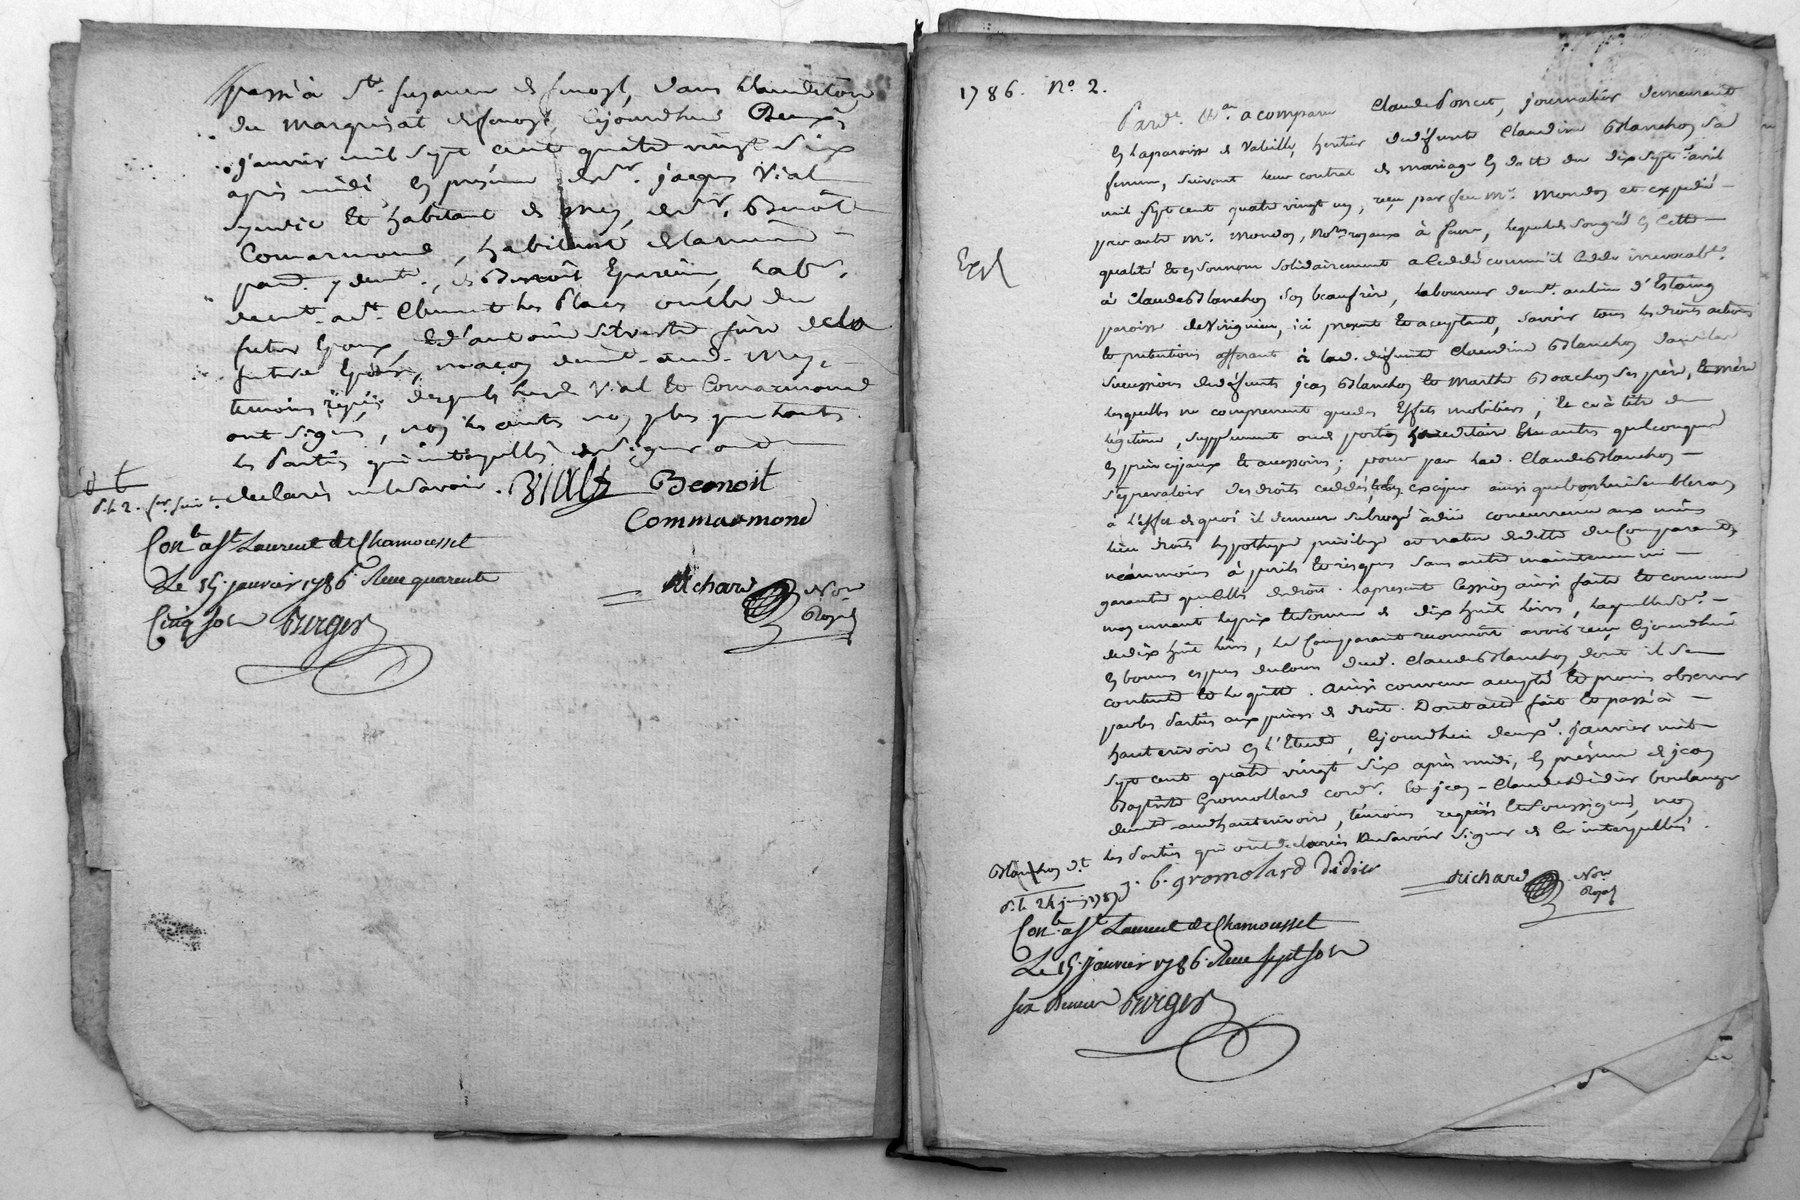 passé à Ste. foy
du Marquisat
janvier mil sept cent quatre vingt six
après midi, En présence de Sr. jacques Vial
syndic Et habitant de Mey, de Sr. Benoît
Comarmond, habitant
Benoît
demt. a St. Clement les Places oncle du
futur Epoux, Et d'antoine frère de la
future Epouse, maçon demt. aud. Mey,
temoins requis desquels les d. Vial Et Comarmond
ont signé, non les autres non plus que
les Parties qui interpellés de signer ont
declarés ne le savoir. Vial Benoit
Commarmond
Con.lé a St. Laurent de Chamousset
Le 15. janvier 1786. Reçu quarente
Cinq sols Burger
Richard Nore
Royal
1786. No. 2.
Pardt. a comparu Claude Poncet, journalier demeurant
En la paroisse de héritier de défunte Claudine Blanchon sa
femme, suivant leur contrat de mariage En datte du dix sept avril
mil sept cent quatre vingt un, reçu par feu Me. Mondon et expedié
par autre Me. Mondon, Nores. royaux à feurs, lequel de son gré En cette
qualité Et En son nom solidairement a Ceddé comme il Cedde irrevocablt.
Expé
à Claude Blanchon son beaufrère, laboureur demt. au lieu d'Estaing
paroisse de Virigneu, ici present Et acceptant, savoir tous les droits actions
Et pretentions afferant à lad. defunte Claudine Blanchon dans les
successions de défunts jean Blanchon Et Marthe ses père, Et mère
lesquelles ne comprennent que des Effets mobiliers, Et ce à titre de
légitime, supplement ou portion hereditaire Et autres quelconque
En principaux Et accessoires; pour par led. Claude Blanchon
s'y prevaloir des droits ceddés, ainsi que bon lui semblera
à l'Effet de quoi il demeure subrogé
lieu droits hypotheque privilege Et nature de dette du Comparant
néanmoins à perils Et risques sans autre maintenue ni
garantie que Celle de droit. la presente Cession ainsi faite Et convenue
moyennant le prix Et somme de dix huit livres, laquelle so.
de dix huit livres, le Comparant reconnoît avoir reçu Cejourdhui
En bonnes especes du Cours dud. Claude Blanchon, dont il se
contente Et le quitte. Ainsi convenu accepté Et promis observer
par les Parties aux peines de droit. Dont acte fait Et passé à
hauterivoire En l'Etude, Cejourdhui deuxe. janvier mil
sept cent quatre vingt six après midi, En présence de jean
Baptiste Gromollard cordr. Et jean-Claude Didier boulanger
demt. aud. hauterivoire, témoins requis Et soussignés, non
les Parties qui ont declarés ne savoir signer de Ce interpellés.
Blanchon
j. b. gromolard Didier
Richard Nore.
Royal
Con.lé a St. Laurent de Chamousset
Le 15. janvier 1786. Reçu sept sols
six denier Burger